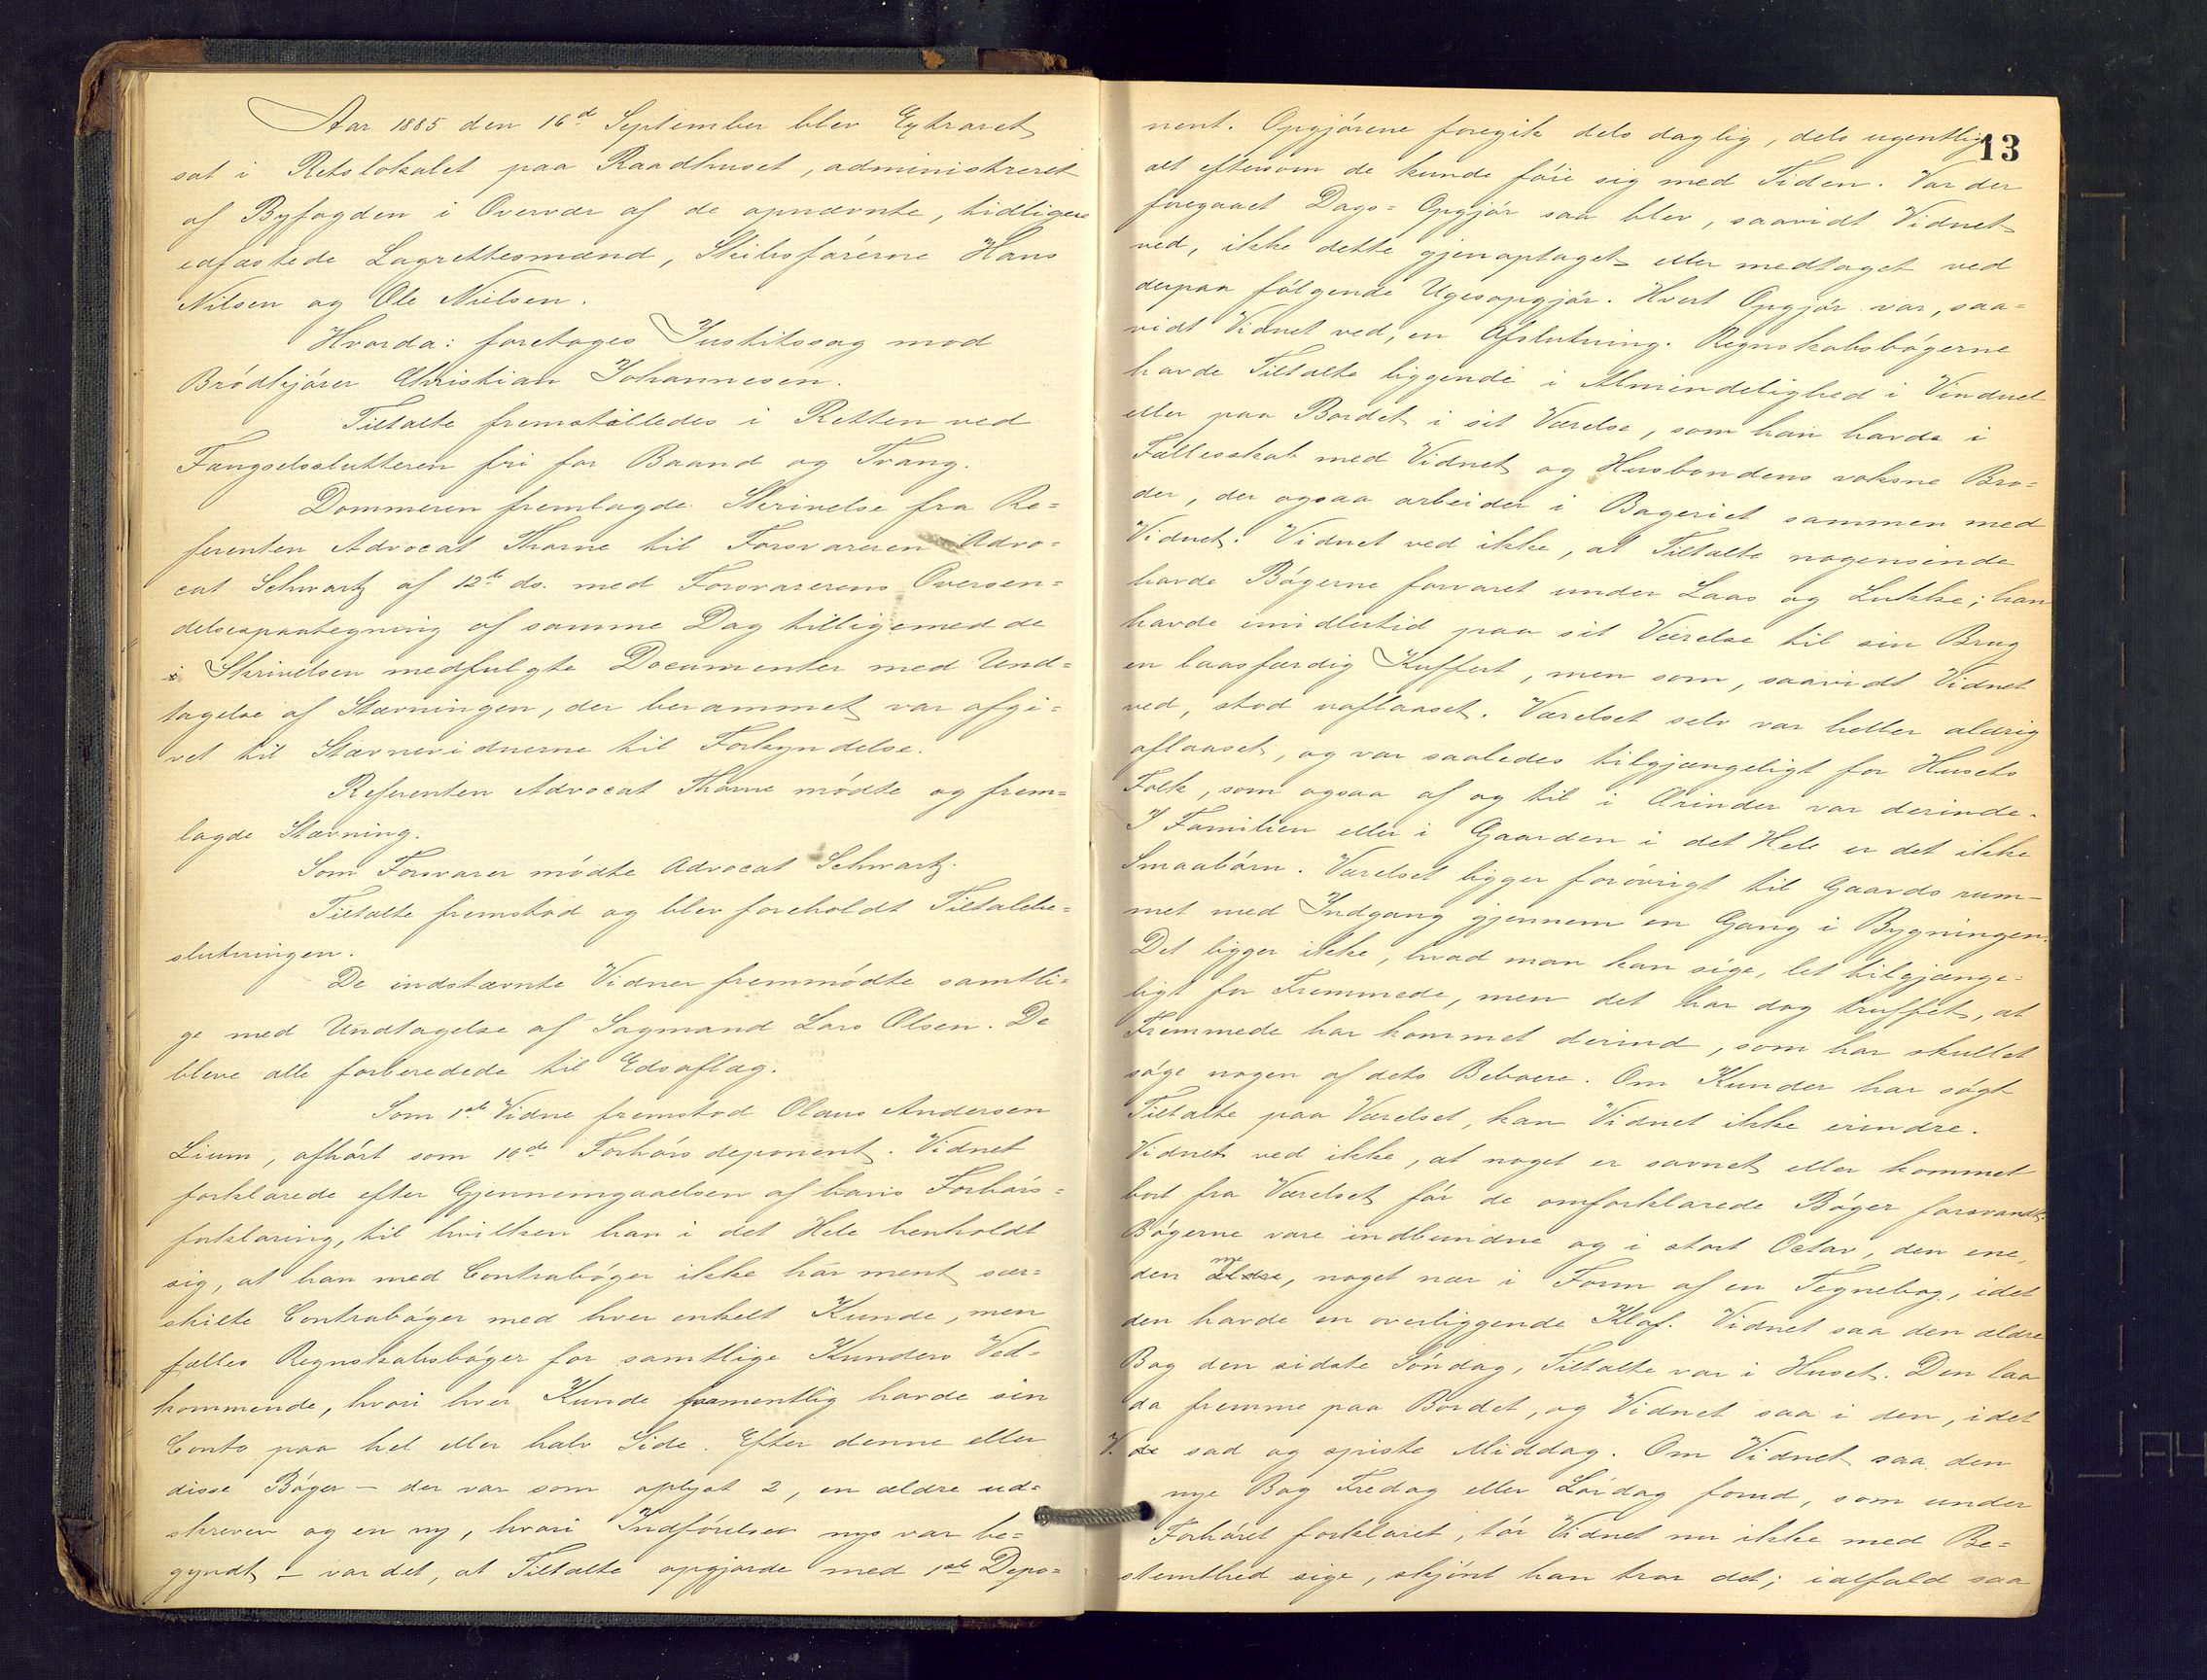 Aar 1885 den 16d September blev Extraret
sat i Retslokalet paa Raadhuset, administreret
af Byfogden i Overvær af de opnævnte, tidligere
edfæstede Lagrettesmænd, Skibsførerne Hans
Nilsen og Ole Nielsen.
Hvorda: foretoges Justitssag mod
Brødkjører Christian Johannesen.
Tiltalte fremstilledes i Retten ved
Fængselsslutteren fri for Baand og Tvang.
Dommeren fremlagde Skrivelse fra Re=
ferenten Advocat Thorne til Forsvareren Advo=
cat Schwartz af 12te ds. med Forsvarerens Oversen=
delsespaategning af samme Dag tilligemed de
i Skrivelsen medfulgte Documenter med Und=
tagelse af Stævningen, der berammet var afgi=
vet til Stævnevidnerne til Forkyndelse.
Referenten Advocat Thorne mødte og frem=
lagde Stævning.
Som Forsvarer mødte Advocat Schwartz.
Tiltalte fremstod og blev foreholdt Tiltalebe=
slutningen.
De indstævnte Vidner fremmødte samtli=
ge med Undtagelse af Sagmand Lars Olsen. De
bleve alle forberedede til Edsaflæg.
Som 1ste Vidne fremstod Olaus Andersen
Lium, afhørt som 10de Forhørsdeponent. Vidnet
forklarede efter Gjennemgaaelsen af hans Forhørs=
forklaring, til hvilken han i det Hele henholdt
sig, at han med Contrabøger ikke har ment sær=
skilte Contrabøger med hver enkelt Kunde, men
fælles Regnskabsbøger for samtlige Kunders Ved=
kommende, hvori hver Kunde formentlig havde sin
Conto paa hel eller halv Side. Efter denne eller
disse Bøger – der var som oplyst 2, en ældre ud=
skreven og en ny, hvori Indførelsen nys var be=
gyndt – var det, at Tiltalte opgjorde med 1ste Depo=
13
nent. Opgjørene foregik dels daglig, dels ugentlig
alt eftersom de kunde føie sig med Tiden. Var der
foregaaet Dags=Opgjør saa blev, saavidt Vidnet
ved, ikke dette gjenoptaget eller medtaget ved
derpaa følgende Ugesopgjør. Hvert Opgjør var, saa=
vidt Vidnet ved, en Afslutning. Regnskabsbøgerne
havde Tiltalte liggende i Almindelighed i Vinduet
eller paa Bordet i sit Værelse, som han havde i
Fællesskab med Vidnet og Husbondens voksne Bro=
der, der ogsaa arbeider i Bageriet sammen med
Vidnet. Vidnet ved ikke, at Tiltalte nogensinde
havde Bøgerne forvaret under Laas og Lukke; han
havde imidlertid paa sit Værelse til sin Brug
en laasfærdig Kuffert, men som, saavidt Vidnet
ved, stod uaflaaset. Værelset selv var heller aldrig
aflaaset, og var saaledes tilgjængeligt for Husets
Folk, som ogsaa af og til i Ærinder var derinde.
I Familien eller i Gaarden i det Hele er det ikke
Smaabørn. Værelset ligger forøvrigt til Gaardsrum=
met med Indgang gjennem en Gang i Bygningen.
Det ligger ikke, hvad man kan sige, let tilgjænge=
ligt for Fremmede, men det har dog truffet, at
Fremmede har kommet derind, som har skullet
søge nogen af dets Beboere. Om Kunder har søgt
Tiltalte paa Værelset, kan Vidnet ikke erindre.
Vidnet ved ikke, at noget er savnet eller kommet
bort fra Værelset før de omforklarede Bøger forsvandt.
Bøgerne vare indbundne og i stort Octav, den ene,
den ældre nye, noget nær i Form af en Tegnebog, idet
den havde en overliggende Klaf. Vidnet saa den ældre
Bog den sidste Søndag, Tiltalte var i Huset. Den laa
da fremme paa Bordet, og Vidnet saa i den, idet
V. de sad og spiste Middag. Om Vidnet saa den
nye Bog Fredag eller Lørdag forud, som under
Forhøret forklaret, tør Vidnet nu ikke med Be=
stemthed sige, skjønt han tror det; ialfald saa